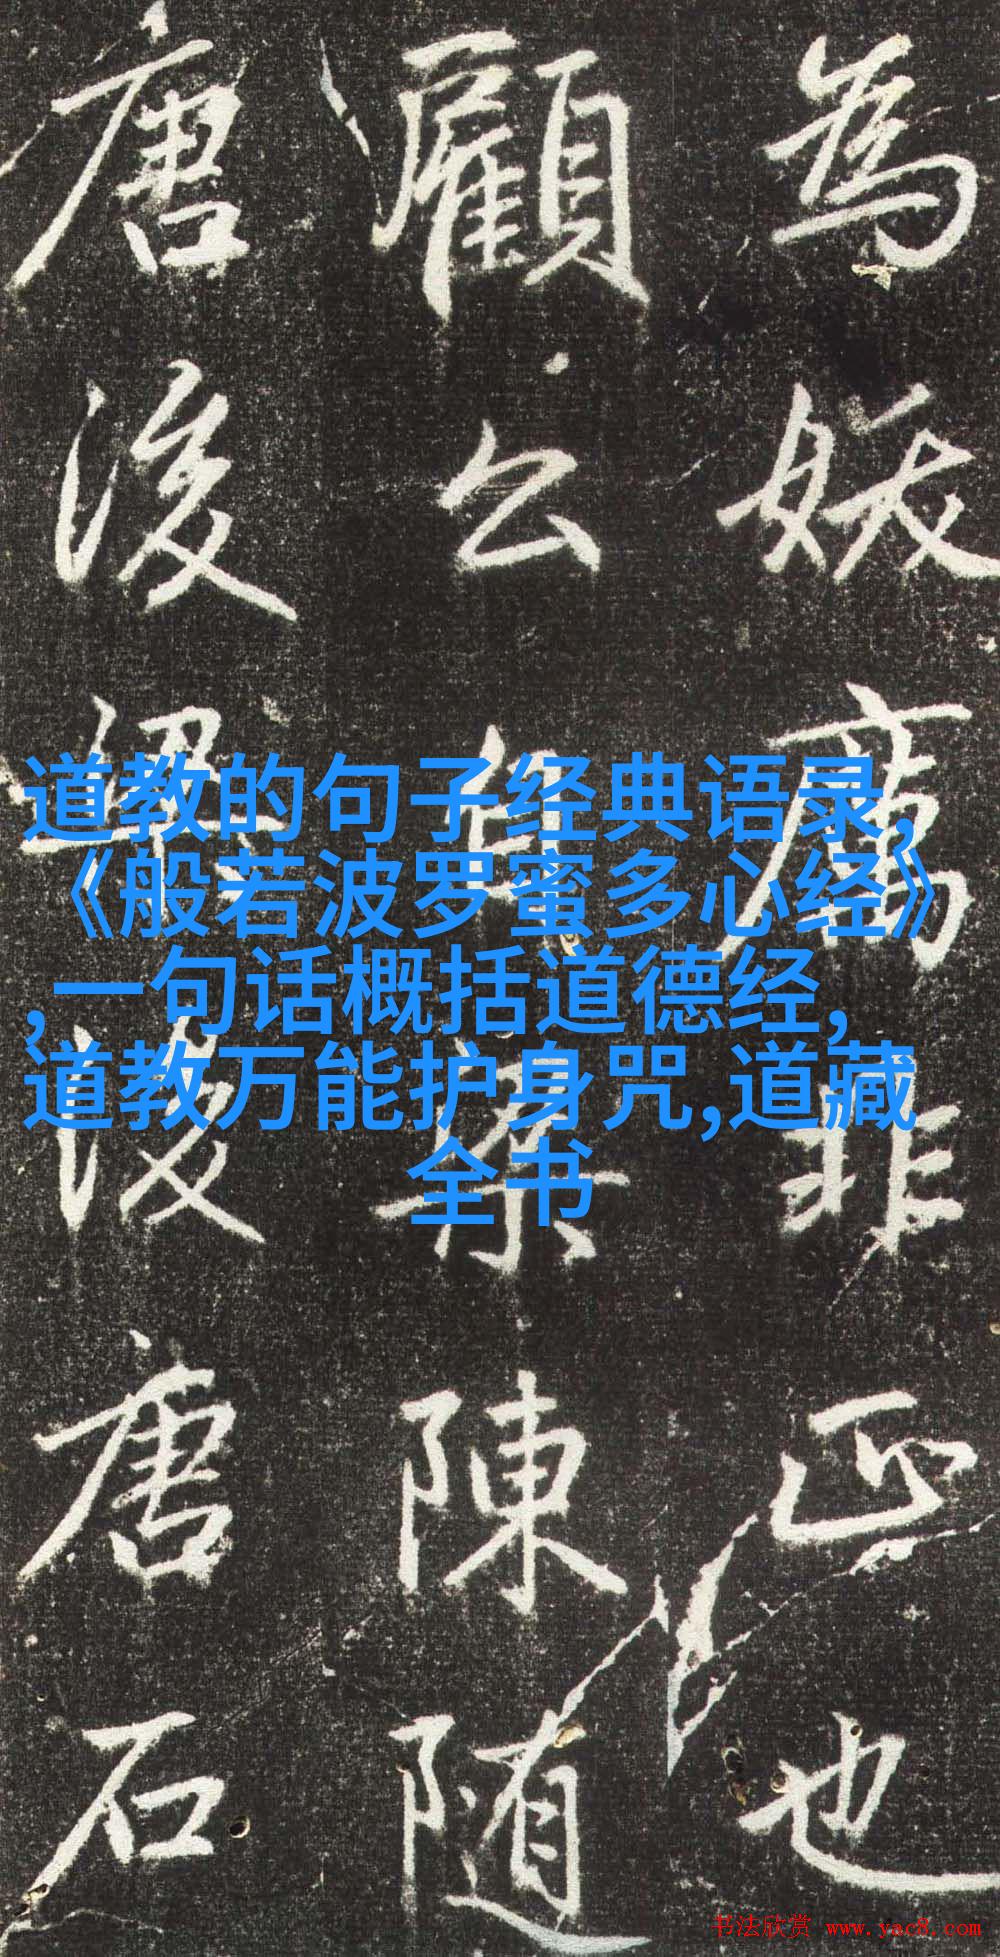 為妖厲非正也
顧公自梁陳隨
唐後梁後唐石
道教的句子经典语录,
《般若波罗蜜多心经》
,一句话概括道德经,
道教万能护身咒,道藏
全书
书法欣赏 www.yac8.com